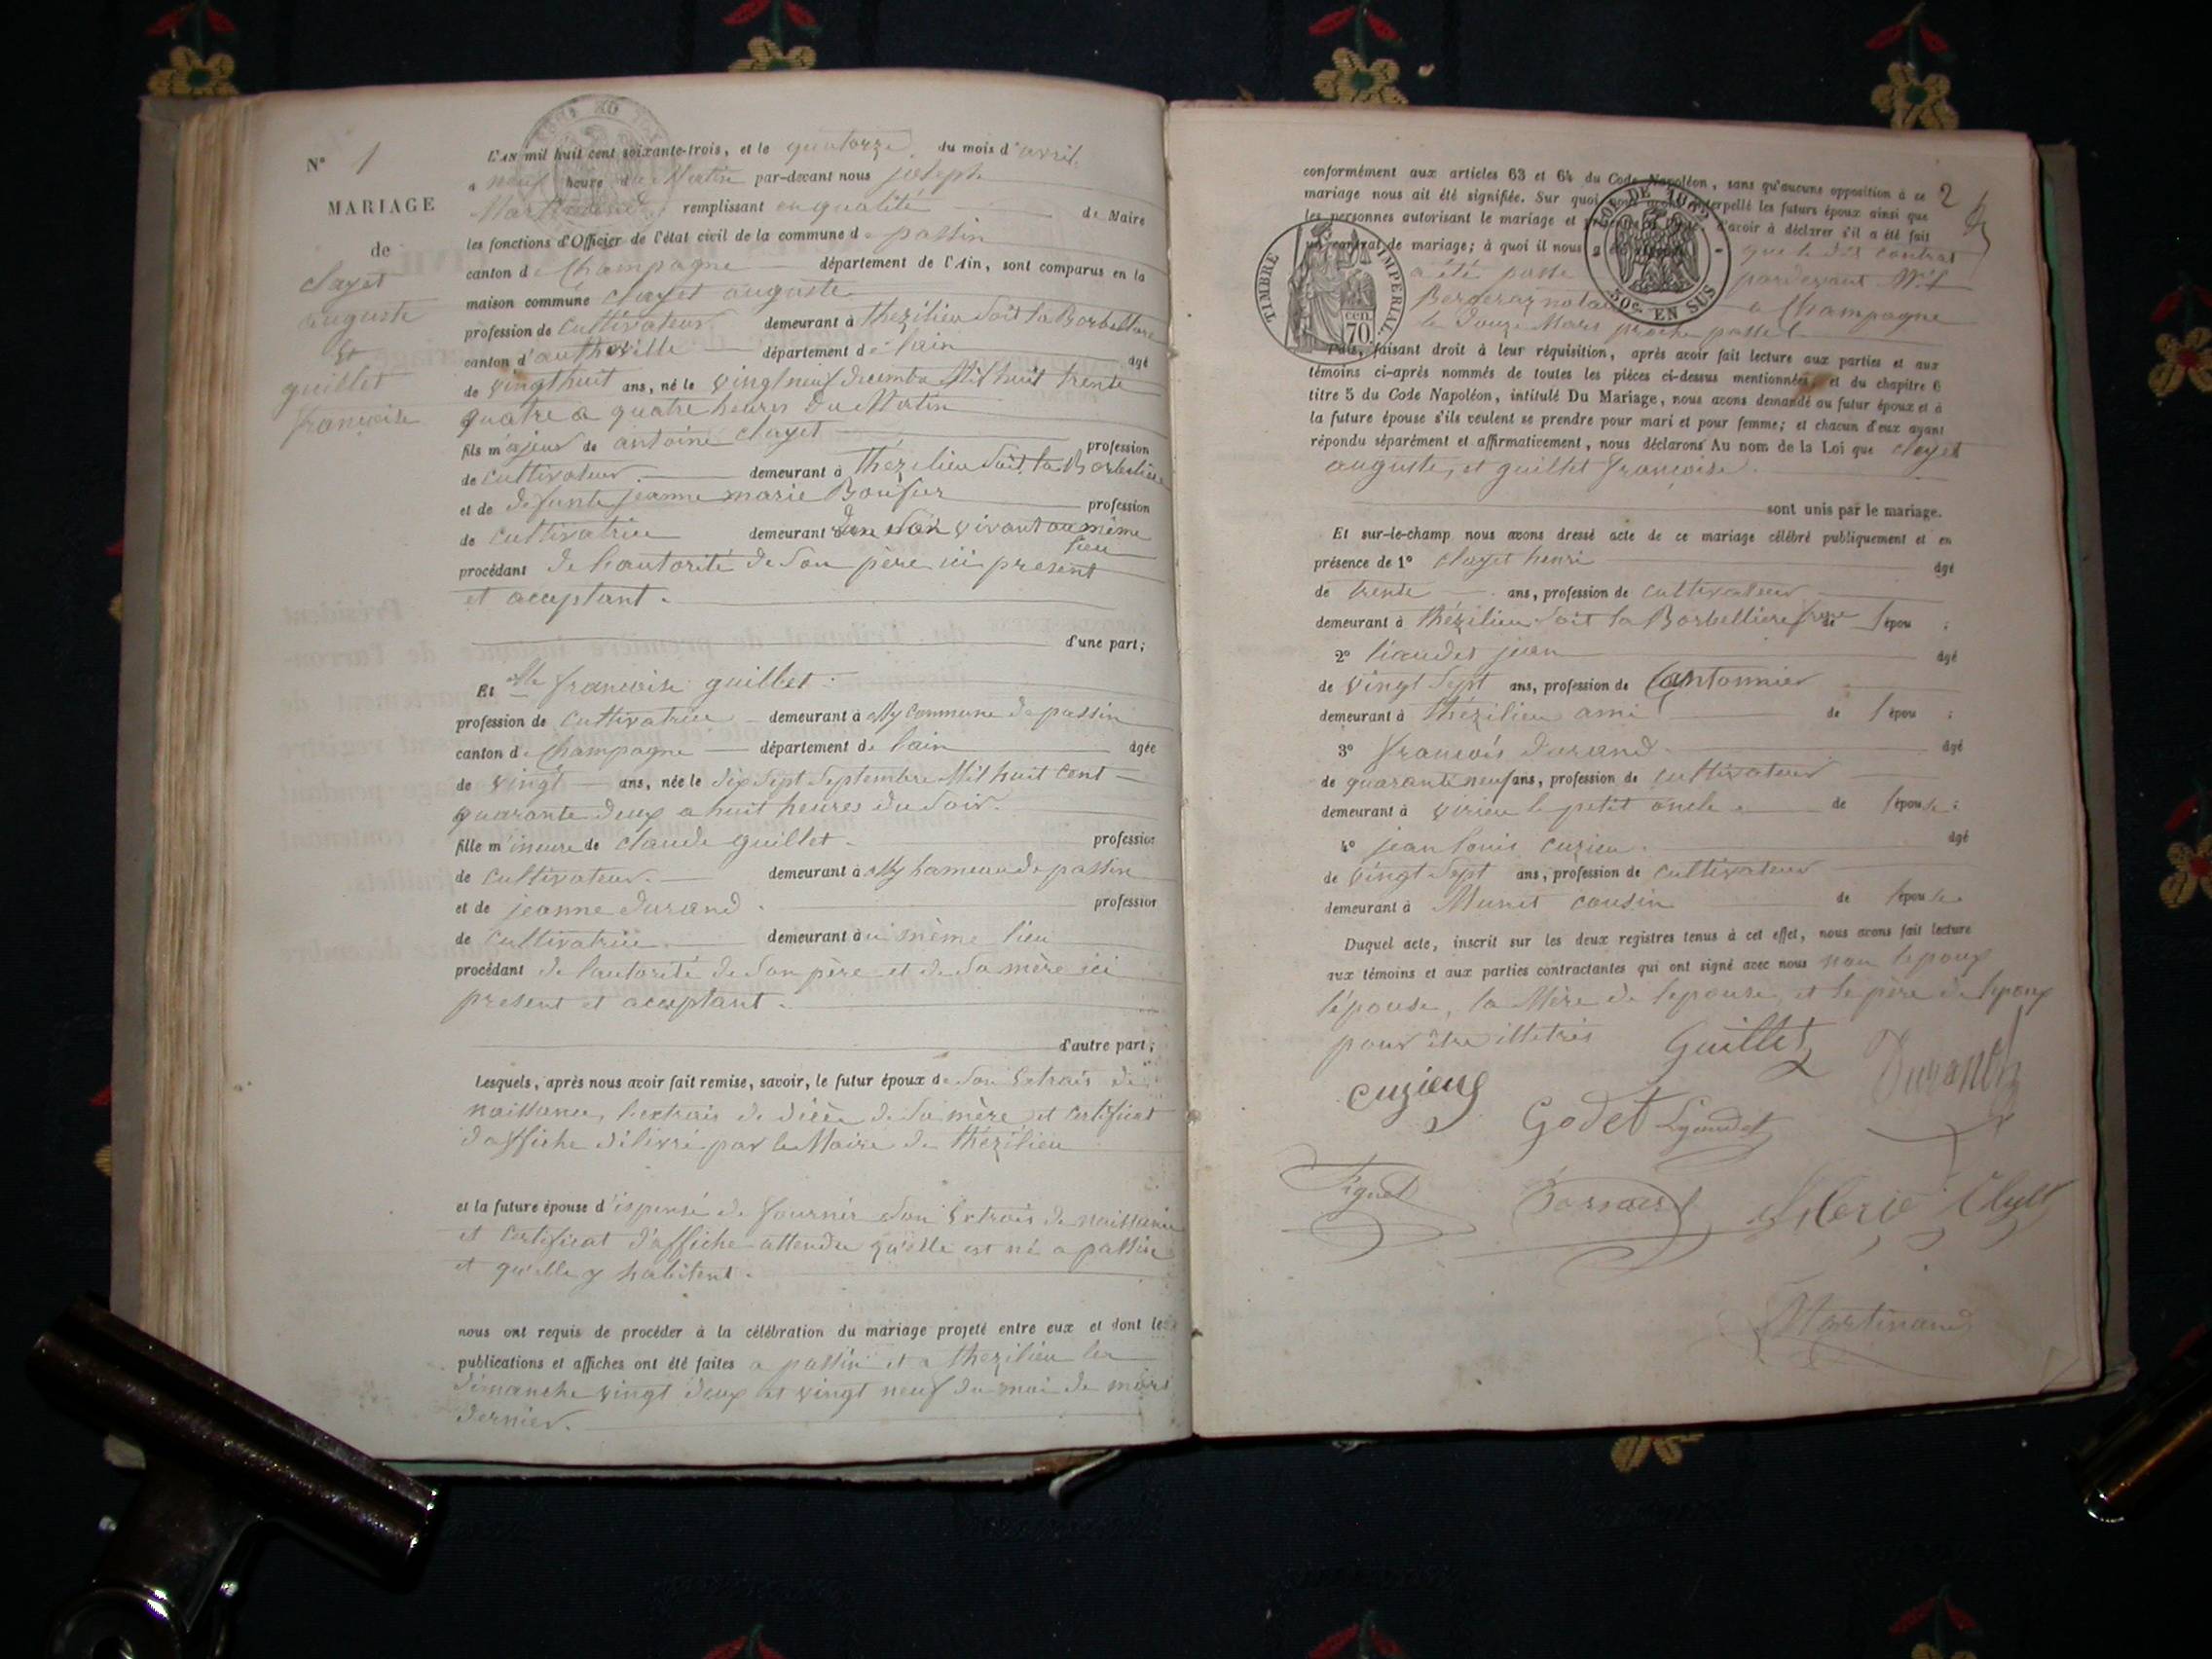 N° 1
MARIAGE
de
clayet
auguste
Et
guillet
françoise
L'AN mil huit cent soixante-trois, et le quatorze du mois d'avril
a neuf heure du Matin par-devant nous joseph
Martinand, remplissant en qualité de Maire
les fonctions d'Officier de l'état civil de la commune de passin
canton de Champagne département de l'Ain, sont comparus en la
maison commune clayet auguste
profession de Cultivateur demeurant à thézilieu soit la Borbellière
canton d' département de l'ain âgé
de vingt huit ans, né le vingt neuf decembre Mil huit trente
quatre a quatre heures du Matin
fils majeur de antoine clayet profession
de cultivateur demeurant à thezilieu soit la Borbellière
et de defunte jeanne marie profession
de cultivatrice demeurant de son vivant au même
lieu
procédant de l'autorité de son père ici présent
et acceptant.
d'une part;
Et Mlle françoise guillet
profession de cultivatrice demeurant à commune de passin
canton de Champagne département de l'ain âgée
de vingt ans, née le dix sept septembre Mil huit cent
quarante deux a huit heures du soir.
fille mineure de claude guillet. profession
de cultivateur. demeurant à hameau de passin
et de jeanne durand. profession
de cultivatrice demeurant au même lieu
procédant de l'autorité de son père et de sa mère ici
present et acceptant.
d'autre part;
Lesquels, après nous avoir fait remise, savoir, le futur époux de son Extrais de
naissance, l'extrais de décè de sa mère et certificat
d'affiche délivré par le Maire de thézilieu
et la future épouse dispensé de fournir son Extrais de naissance
et certificat d'affiche attendu qu'elle est né a passin
et qu'elle y habitent.
nous ont requis de procéder à la célébration du mariage projeté entre eux et dont les
publications et affiches ont été faites a passin et a thezilieu les
dimanche vingt deux et vingt neuf du moi de mars
dernier.
2
conformément aux articles 63 et 64 du Code Napoléon, sans qu'aucune opposition à ce
mariage nous ait été signifiée. Sur quoi nous avons interpellé les futurs époux ainsi que
les personnes autorisant le mariage et d'avoir à déclarer s'il a été fait
un contrat de mariage; à quoi il nous a que le dit contrat
a été passé pardevant
Bergeraz notaire a Champagne
le douze Mars proche passé
TIMBRE IMPERIAL
70 cen.
50c. EN SUS
Puis, faisant droit à leur réquisition, après avoir fait lecture aux parties et aux
témoins ci-après nommés de toutes les pièces ci-dessus mentionnées, et du chapitre 6
titre 5 du Code Napoléon, intitulé Du Mariage, nous avons demandé au futur époux et à
la future épouse s'ils veulent se prendre pour mari et pour femme; et chacun d'eux ayant
répondu séparément et affirmativement, nous déclarons Au nom de la Loi que clayet
auguste, et guillet françoise.
sont unis par le mariage.
Et sur-le-champ nous avons dressé acte de ce mariage célébré publiquement et en
présence de 1° clayet henri âgé
de trente ans, profession de cultivateur
demeurant à thézilieu soit la Borbellière frère de l'épou ;
2° liaudet jean âgé
de vingt sept ans, profession de Cantonnier
demeurant à thézilieu ami de l'épou ;
3° françois durand âgé
de quarante neuf ans, profession de cultivateur
demeurant à virieu le petit oncle de l'épouse;
4° jean louis cuzieu. âgé
de vingt sept ans, profession de cultivateur
demeurant à Munet cousin de l'épouse.
Duquel acte, inscrit sur les deux registres tenus à cet effet, nous avons fait lecture
aux témoins et aux parties contractantes qui ont signé avec nous non l'epoux
l'épouse, la Mère de l'epouse, et le père de l'epoux
pour être illetrés Guillet Durand
Godet Lyaudet
Martinand